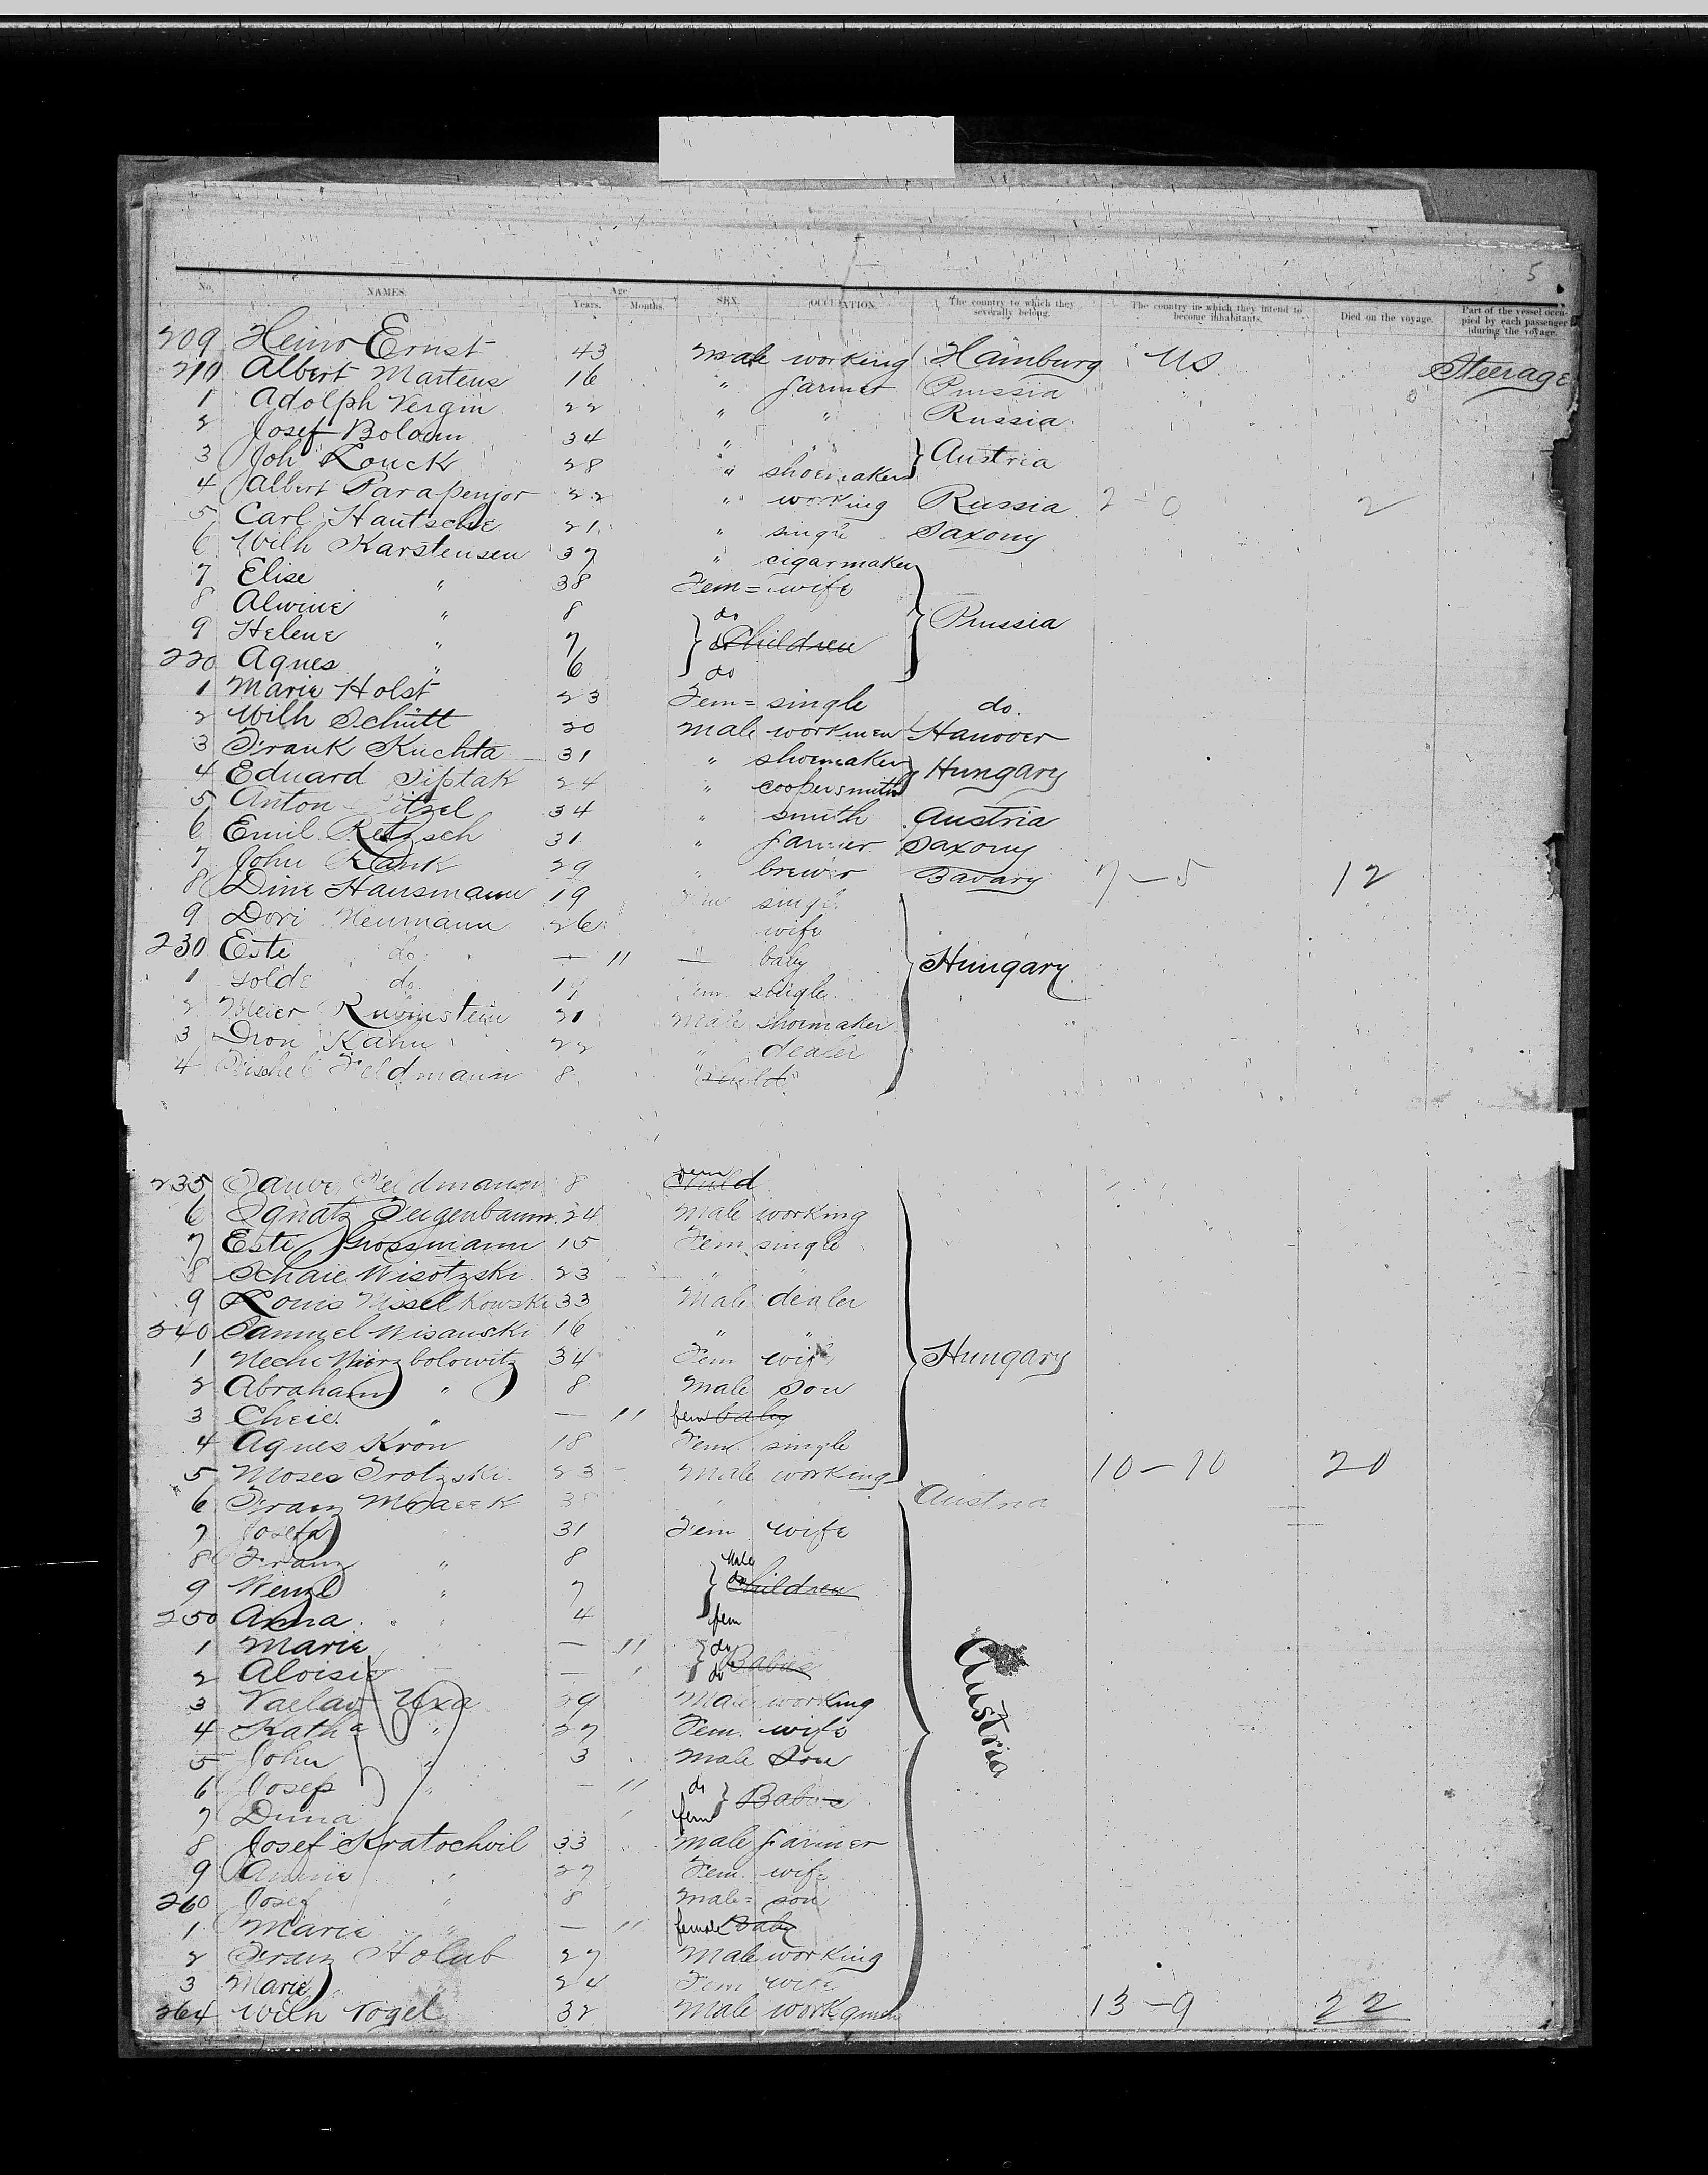 5
No. NAMES. Age Years. Months. SEX. OCCUPATION. The country to which they severally belong. The country in which they intend to become inhabitants. Died on the voyage. Part of the vessel occupied by each passenger during the voyage.
209 Heinr Ernst 43 Male working Hamburg US Steerage
210 Albert Martens 16 " farmer Prussia
1 Adolph Vergin 22 " " Russia
2 Josef 34 " " } Austria
3 Joh Louck 28 " shoemaker
4 Albert 22 " working Russia 2 - 0 2
5 Carl Hautsche 21 " single Saxony
6 Wilh Karstensen 37 " cigarmaker
7 Elise " 38 Fem= wife
8 Alwine " 8 do } Prussia
9 Helene " 7 } do Children
220 Agnes " 6 do
1 Marie Holst 23 Fem= single do.
2 Wilh Schütt 20 Male workmen Hanover
3 Frank Kuchta 31 " shoemaker } Hungary
4 Eduard Siptak 24 " coopersmith
5 Anton 34 " smith Austria
6 Emil Retzsch 31 " farmer Saxony
7 John Rank 29 " brewer Bavary 7 - 5 12
8 Dine Hausmann 19 Fem single
9 Dori Neumann 26 wife
230 Esti do. — 11 — baby } Hungary
1 do. 19 Fem single
2 Meier Rubinstein 21 Male shoemaker
3 Kahn 22 " dealer
4 Feldmann 8 " child
235 8 fem Child
6 Ignatz Feigenbaum 24 Male working
7 Esti Grossmann 15 Fem single
8 Schaie Wisotzski 23 " "
9 Louis 33 Male dealer
240 Samuel Wisanski 16 " "
1 Neche Wierzbolowitz 34 Fem wife } Hungary
2 Abraham " 8 Male son
3 Cheie " — 11 fem baby
4 Agnes Kron 18 Fem. single
5 Moses Trotzski 23 Male working 10 - 10 20
6 Franz Mracek " Austria
7 Josefa " 31 Fem wife
8 Franz " 8 Male
9 Wenzl " 7 } do Children
250 Anna " 4 fem
1 Marie — 11 } do
2 Aloisie — " do Babies
3 Vaclav Uxa 29 Male working
4 Katha " 27 Fem. wife } Austria
5 John " 3 Male Son
6 Josep " — 11 do } Babies
7 " fem
8 Josef Kratochvil 33 Male farmer
9 " 27 Fem. wife
260 Josef " 8 Male= son
1 Marie " — 11 female Baby
2 Franz Holub 27 Male working
3 Marie 24 Fem wife
264 Wilh Vogel 32 Male 13 - 9 22